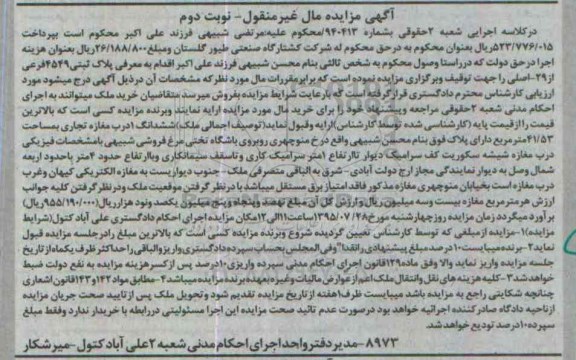 آگهی مزایده مال غیرمنقول - نوبت دوم
درکلاسه اجرایی شعبه ۲حقوقی بشماره ۹۴۰۴۱۳/ محکوم علیه مرتضی شبیهی فرزند علی اکبر محکوم است بپرداخت
۵۲۳/۷۷۶/۰۱۵ریال بعنوان محکوم به درحق محکوم له شرکت کشتارگاه صنعتی طیور گلستان ومبلغ۲۶/۱۸۸/۸۰۰ریال بعنوان هزینه
اجرا درحق دولت که درراستا وصول محکوم به شخص ثالثی بنام محسن شبیهی فرزند علی اکبر اقدام به معرفی پلاک ثبتی ۴۵۴۹فرعی
از۲۹-اصلی را جهت توقیف وبرگزاری مزایده نموده است که برابرمقررات مال مورد نظرکه مشخصات آن درذیل آگهی درج میشود مورد
ارزیابی کارشناس محترم دادگستری قرارگرفته است که بارعایت شرایط مزایده بفروش میرسد متقاضیان خرید ملک میتوانند به اجرای
احکام مدنی شعبه ۲حقوقی مراجعه وپیشنهاد خود را برای خرید مال مورد مزایده ارایه نمایند وبرنده مزایده کسی است که بالاترین
قیمت را از قیمت پایه (کارشناسی شده توسط کارشناس)ارایه وقبول نماید(توصیف اجمالی ملک)ششدانگ ۱درب مغازه تجاری بمساحت
۴۱/۵۳مترمربع دارای پلاک فوق بنام محسن شبیهی واقع درخ منوچهری روبروی باشگاه تختی مرغ فروشی شبیهی بامشخصات فیزیکی
درب مغازه شیشه سکوریت کف سرامیک دیوار تاارتفاع ۱متر سرامیک کاری وتاسقف سیمانکاری وباارتفاع حدود ۴متر باحدود اربعه
شمال وصل به دیوار نمایندگی مجاز ارج دولت آبادی - شرق به الباقی متصرفی ملک - جنوب دیواریست به مغازه الکتریکی کیهان وغرب
درب مغازه است بخیابان منوچهری مغازه مذکور فاقد امتیاز برق مستقل میباشد با درنظر گرفتن موقعیت ملک ودرنظر گرفتن کلیه جوانب
ارزش هرمترمربع مغازه بیست وسه میلیون ریال وارزش کل آن مبلغ نهصد وپنجاه وپنج میلیون یکصد ونود هزارریال(۹۵۵/۱۹۰/۰۰۰ریال)
برآورد میگردد زمان مزایده روزچهارشنبه مورخ ۱۳۹۵/۰۷/۲۸ساعت۱۱الی۱۲مکان مزایده اجرای احکام دادگستری علی آباد کتول(شرایط
مزایده)۱-مزایده ازمبلغی که توسط کارشناس تعیین گردیده شروع وبرنده مزایده کسی است که بالاترین مبلغ رادرجلسه مزایده قبول
نماید۲-برنده میبایست۱۰درصد مبلغ پیشنهادی رانقدا" وفی المجلس بحساب سپرده دادگستری واریزوالباقی راحداکثر ظرف یکماه ازتاریخ
جلسه مزایده واریز نماید والا وفق ماده۱۲۹قانون اجرای احکام مدنی سپرده واریزی۱۰درصد پس از کسرهزینه مزایده به نفع دولت ضبط
خواهدشد۳-کلیه هزینه های نقل وانتقال ملک اعم از عوارض مالیات وغیره بعهده برنده مزایده میباشد۴-مطابق مواد۱۴۲و۱۴۳قانون اشعاری
چنانچه شکایتی راجع به مزایده باشد میبایست ظرف۱هفته ازتاریخ مزایده تقدیم شود وتحویل ملک پس از تایید صحت جریان مزایده
ازناحیه دادگاه صادرکننده اجرائیه خواهد بود درصورت عدم تائید صحت مزایده این اجرا مسئولیتی دررابطه با خریدار ندارد وفقط مبلغ
سپرده۱۰درصد تودیع خواهدشد.
۸۹۷۳-مدیردفترواحداجرای احکام مدنی شعبه ۲علی آباد کتول-میرشکار